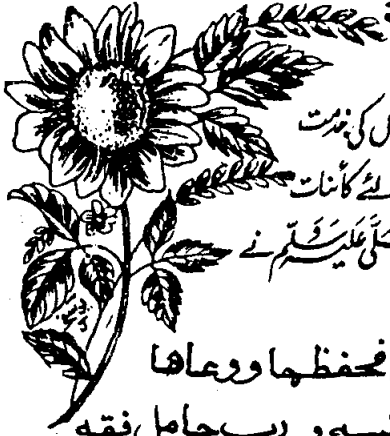 ل کی خدمت
لئے کائنات
صَلَّی عَلَیْہِ وَسَلَّم نے
فحفظها ووعاها
ـه و رب حامل فقه